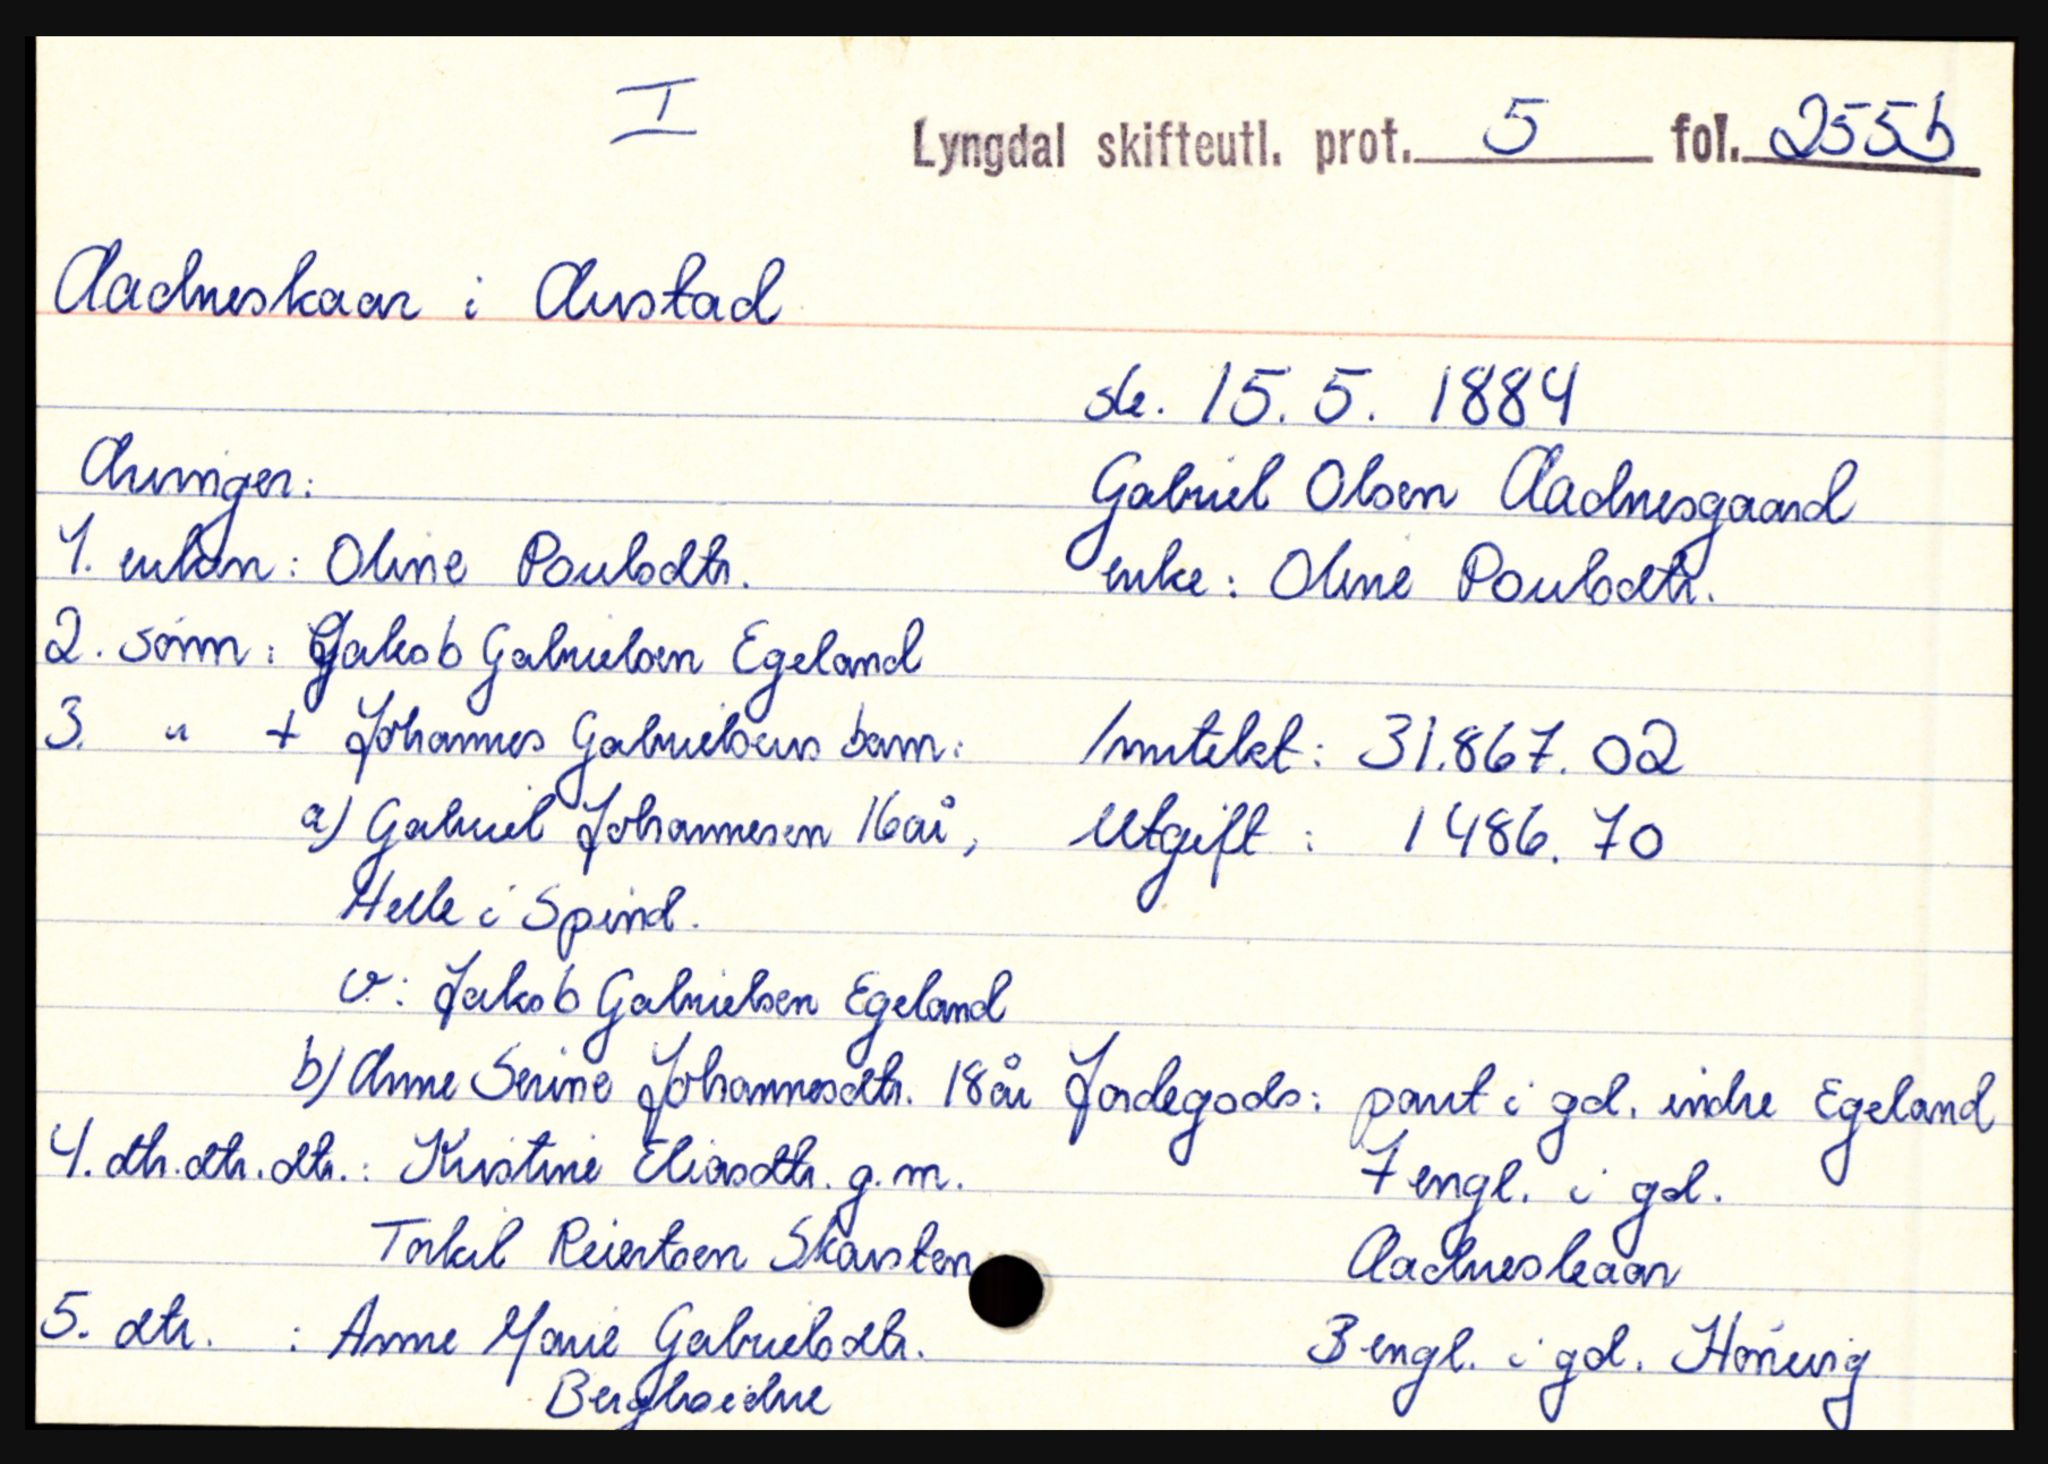 I
Lyngdal skifteutl. prot. 5 fol. 255b
Aadneskaar i Austad
sk. 15.5. 1884
Arvinger:
Gabriel Olsen Aadnesgaard
1. enken: Oline Poulsdtr.
enke: Oline Poulsdtr.
2. sønn: Jakob Gabrielsen Egeland
3. " + Johannes Gabrielsens barn:
Inntekt: 31.867.02
a) Gabriel Johannesen 16 år,
Utgift: 1486.70
Helle i Spind.
v: Jakob Gabrielsen Egeland
b) Anne Serine Johannesdtr. 18 år
Jordegods: part i gd. indre Egeland
4. dtr.dtr.dtr.: Kristine Eliasdtr. g.m.
7 engl. i gd.
Torkil Reiertsen Skarsten
Aadneskaar
5. dtr. : Anne Marie Gabrielsdtr.
3 engl. i gd. Hörvig
Bergsheidne